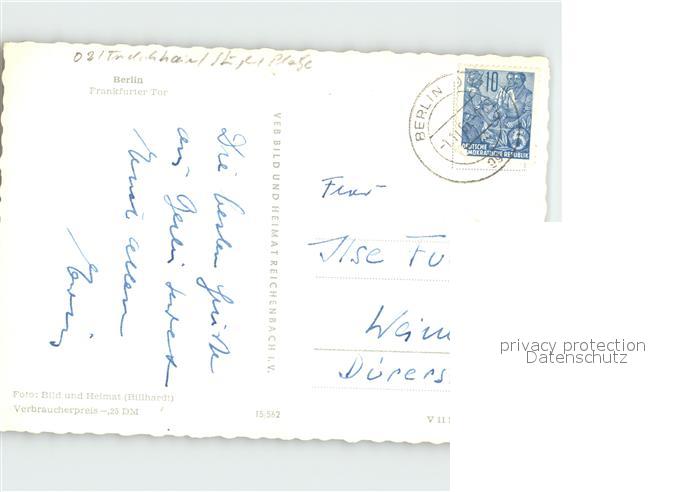 Berlin
Frankfurter Tor
Die besten Grüße
aus Berlin sendet
Euch allen
VEB BILD UND HEIMAT REICHENBACH I. V.
BERLIN
10
DEUTSCHE
DEMOKRATISCHE REPUBLIK
Frau
Ilse Fu
Weim
Dürers
Foto: Bild und Heimat (Billhardt)
Verbraucherpreis -,25 DM
15/562
V 11
privacy protection
Datenschutz